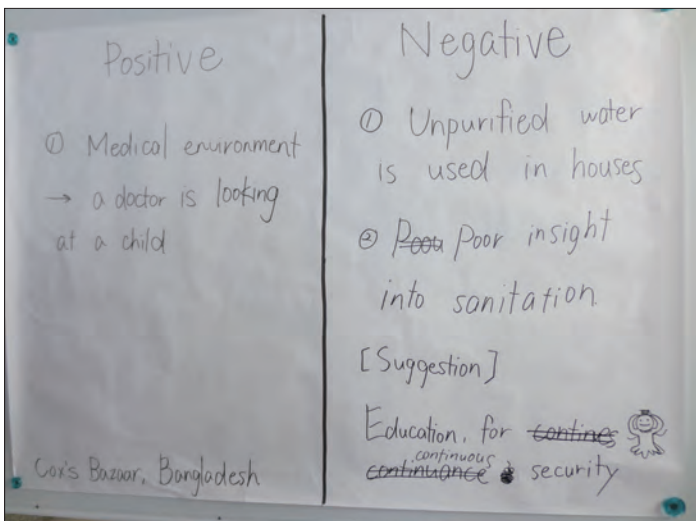 Positive
① Medical environment
→ a doctor is looking
at a child
Cox's Bazaar, Bangladesh
Negative
① Unpurified water
is used in houses
② Poor insight
into sanitation
[Suggestion]
Education, for
continuous
continuance security